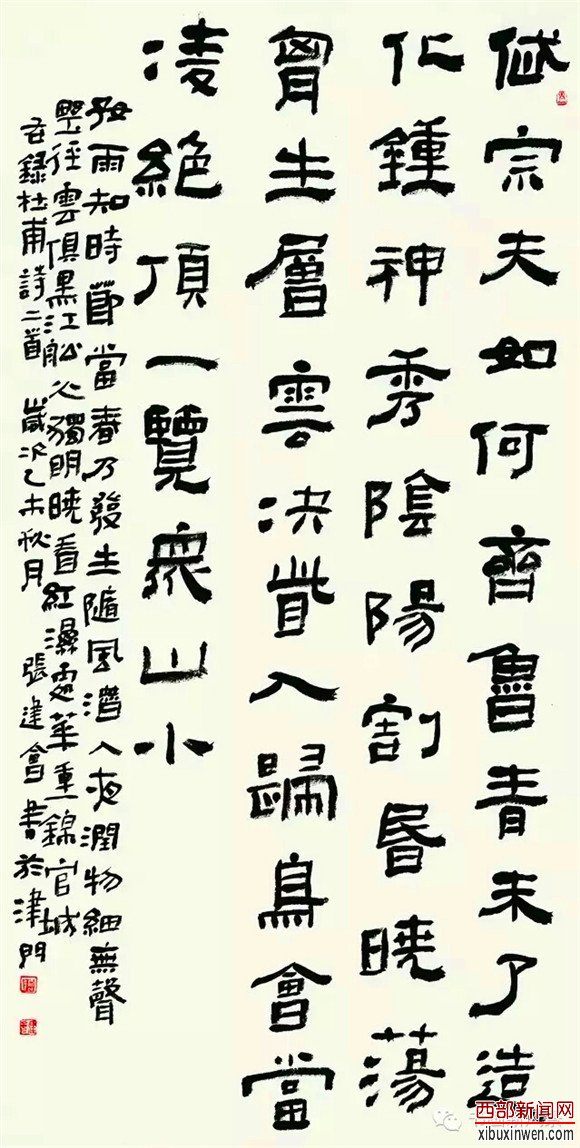 岱宗夫如何齊魯青未了造
化鍾神秀陰陽割昏曉蕩
胷生層雲決眥入歸鳥會當
凌絕頂一覽眾山小
好雨知時節當春乃發生隨風潛入夜潤物細無聲
野徑雲俱黑江船火獨明曉看紅濕處華重錦官城
右錄杜甫詩二首 歲次乙未秋月 張建會書於津門
西部新闻网
xibuxinwen.com